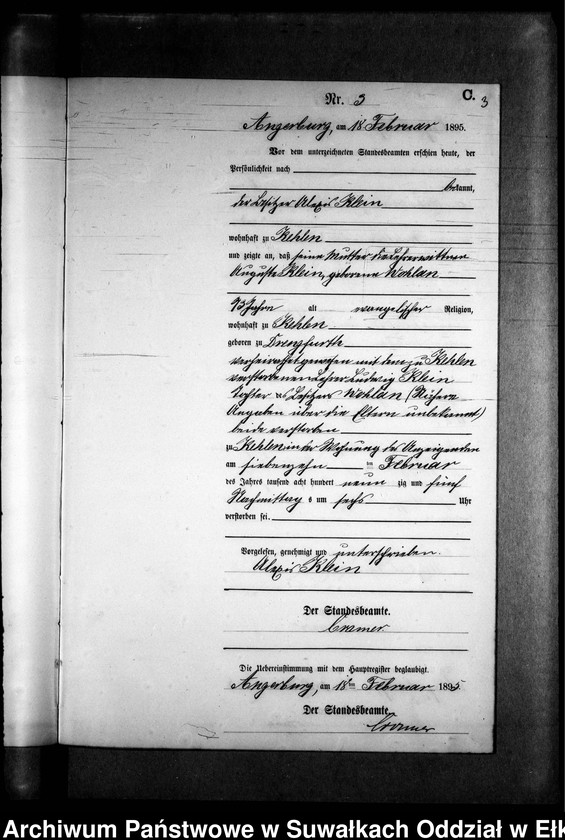 Nr. 3 C. 3
Angerburg, am 18 Februar 1895.
Vor dem unterzeichneten Standesbeamten erschien heute, der
Persönlichkeit nach
bekannt,
der Besitzer Alexis Klein
wohnhaft zu Kehlen
und zeigte an, daß seine Mutter die Lehrerwittwe
Auguste Klein, geborene Wohlan
93 Jahre alt evangelischer Religion,
wohnhaft zu Kehlen
geboren zu Drengfurth
verheirathet gewesen mit dem zu Kehlen
verstorbenen Lehrer Ludwig Klein
Tochter des Besitzers Wohlan (Nähere
Angaben über die Eltern unbekannt)
beide verstorben
zu Kehlen in der Wohnung des Anzeigenden
am siebenzehn ten Februar
des Jahres tausend acht hundert neun zig und fünf
Nachmittag s um sechs Uhr
verstorben sei.
Vorgelesen, genehmigt und unterschrieben.
Alexis Klein
Der Standesbeamte.
Cramer.
Die Uebereinstimmung mit dem Hauptregister beglaubigt.
Angerburg, am 18ten Februar 1895.
Der Standesbeamte.
Cramer
Archiwum Państwowe w Suwałkach Oddział w Ełk